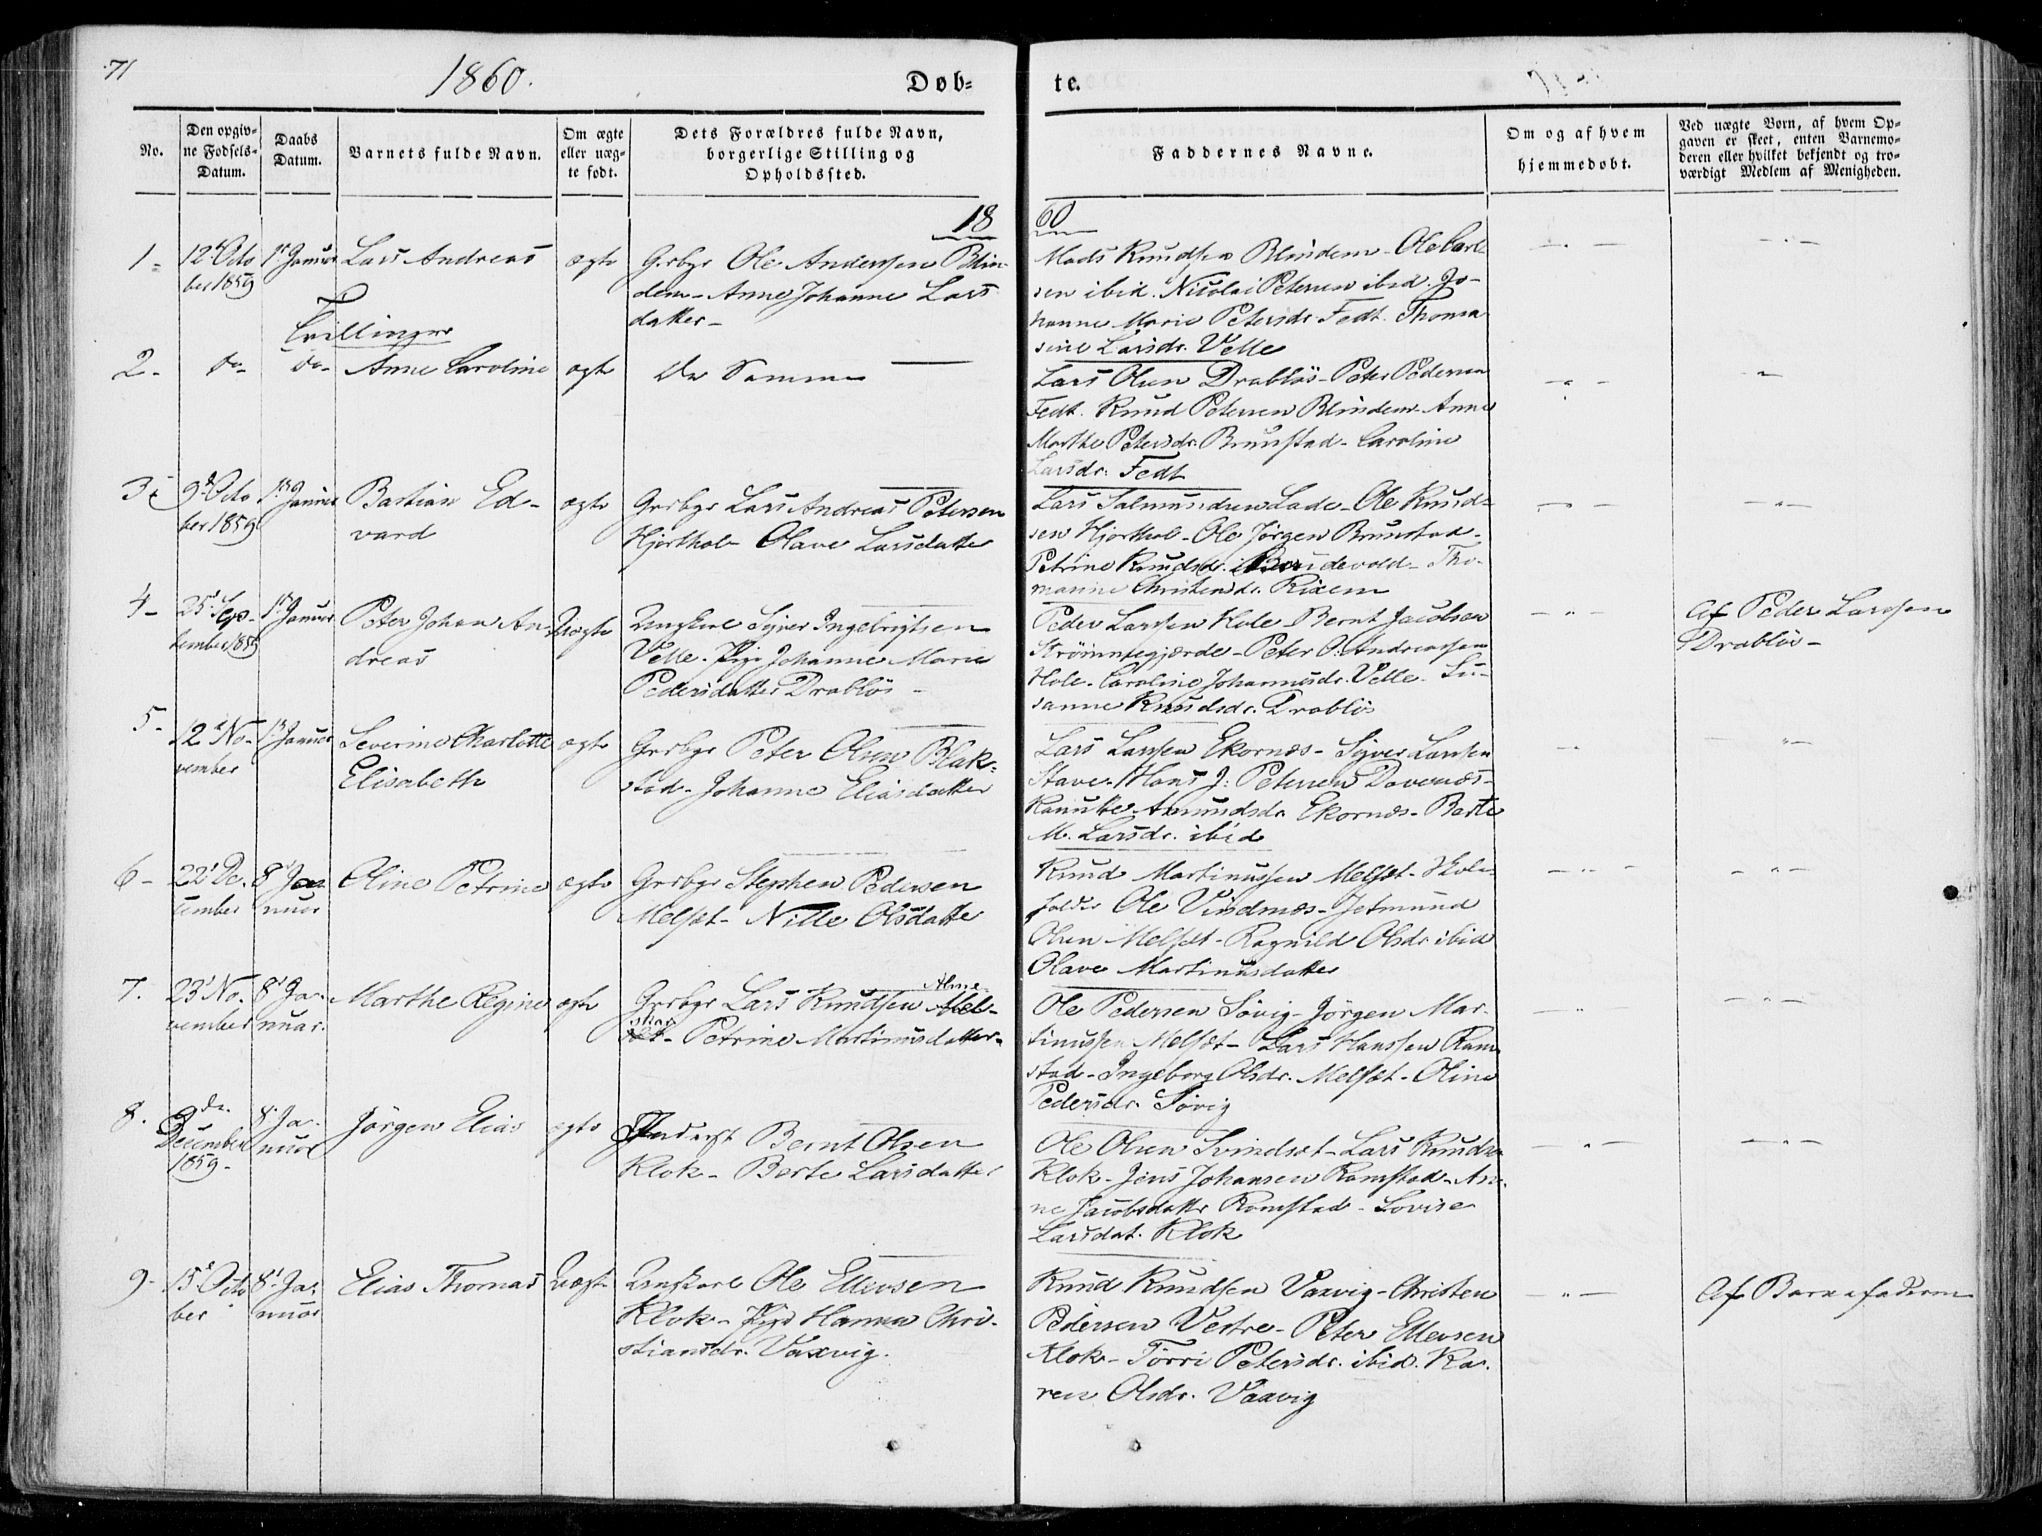 71
1860.
Døb-
te.
No.
Den opgiv-
ne Fødsels-
Datum.
Daabs
Datum.
Barnets fulde Navn.
Om ægte
eller uæg-
te født.
Dets Forældres fulde Navn,
borgerlige Stilling og
Opholdssted.
Faddernes Navne.
Om og af hvem
hjemmedøbt.
Ved uægte Børn, af hvem Op-
gaven er skeet, enten Barnemo-
deren eller hvilket bekjendt og tro-
værdigt Medlem af Menigheden.
18
60
1-
12 Octo
ber 1859
1 Januar
Lars Andreas
ægte
Grbgr Ole Anderssen Blin-
dem- Anne Johanne Lars
datter-
Mads Knudsen Blindem- Ole Carl-
sen ibid. Nicolai Petersen ibid. Jo-
hanne Marie Petersdr. Fedt. Thoma
sine Larsdr. Velle
Tvillinger
2-
do-
do-
Anne Caroline
ægte
De Samme
Lars Olsen Drabløs- Peter Pedersen
Fedt. Knud Petersen Blindem- Anne
Marthe Petersdr. Brunstad- Caroline
Larsdr. Fedt
3
9 Octo
ber 1859
1 Januar
Bastian Ed-
vard
ægte
Grbgr Lars Andreas Petersen
Hjorthol- Olave Larsdatter
Lars Salmundsen Lade- Ole Knud-
sen Hjorthol- Ole Jørgen Brunstad-
Petrine Knudsdr. Tho-
manine Christensdr. Rixem
4-
25 Sep-
tember 1859
1 Januar
Peter Johan An-
dreas
Uægte
Ungkarl Syver Ingebrigtsen
Velle. Pige Johanne Marie
Pedersdatter Drabløs-
Peder Larssen Hole- Bernt Jacobsen
Strømmegjærde- Peter O. Andreassen
Hole- Caroline Johannesdr. Velle- Su-
sanne Knudsdr. Drabløs
Af Peder Larssen
Drabløs-
5-
12 No-
vember
1 Januar
Severine Charlotte
Elisabeth
ægte
Grbgr Peter Olsen Blak-
stad- Johanne Eliasdatter
Lars Larssen Ekornes- Syver Larssen
Stave- Hans J. Petersen Davenes-
Amundsdr. Ekornes- Berte
M. Larsdr. ibid
6-
22 De-
cember
8 Ja
nuar
Oline Petrine
ægte
Grbgr Stephen Pedersen
Melsæt- Nille Olsdatter
Knud Martinussen Melsæt- Skole-
holder Ole Vindnes- Jetmund
Olsen Melsæt- Ragnild Olsdr. ibid
Olave Martinusdatter
7.
23 No-
vember
8 Ja-
nuar.
Marthe Regine
ægte
Grbgr Lars Knudsen
Alme-
skar
Petrine Martinusdatter-
Ole Pedersen Søvig- Jørgen Mar-
tinussen Melsæt- Lars Hanssen Ram-
stad- Ingeborg Olsdr. Melsæt- Oline
Pedersdr. Søvig
8.
3 de.
December
1859-
8 Ja-
nuar
Jørgen Elias
ægte
Bernt Olsen
Klok- Berte Larsdatter
Ole Olsen Svindset- Lars Knudsen
Klok- Jens Johansen Ramstad- An-
ne Jacobsdatter Ramstad- Lovise
Larsdat. Klok
9-
15 Octo
ber
8 Ja-
nuar
Elias Thomas
Uægte
Ungkarl Ole Ellevsen
Klok- Pige Hanna Chri-
stiansdr. Vaxvig.
Knud Knudsen Vaxvig- Christen
Pedersen Vestre- Peter Ellevsen
Klok- Petersdr. ibid. Ka-
ren Olsdr. Vaxvig
Af Barnefaderen